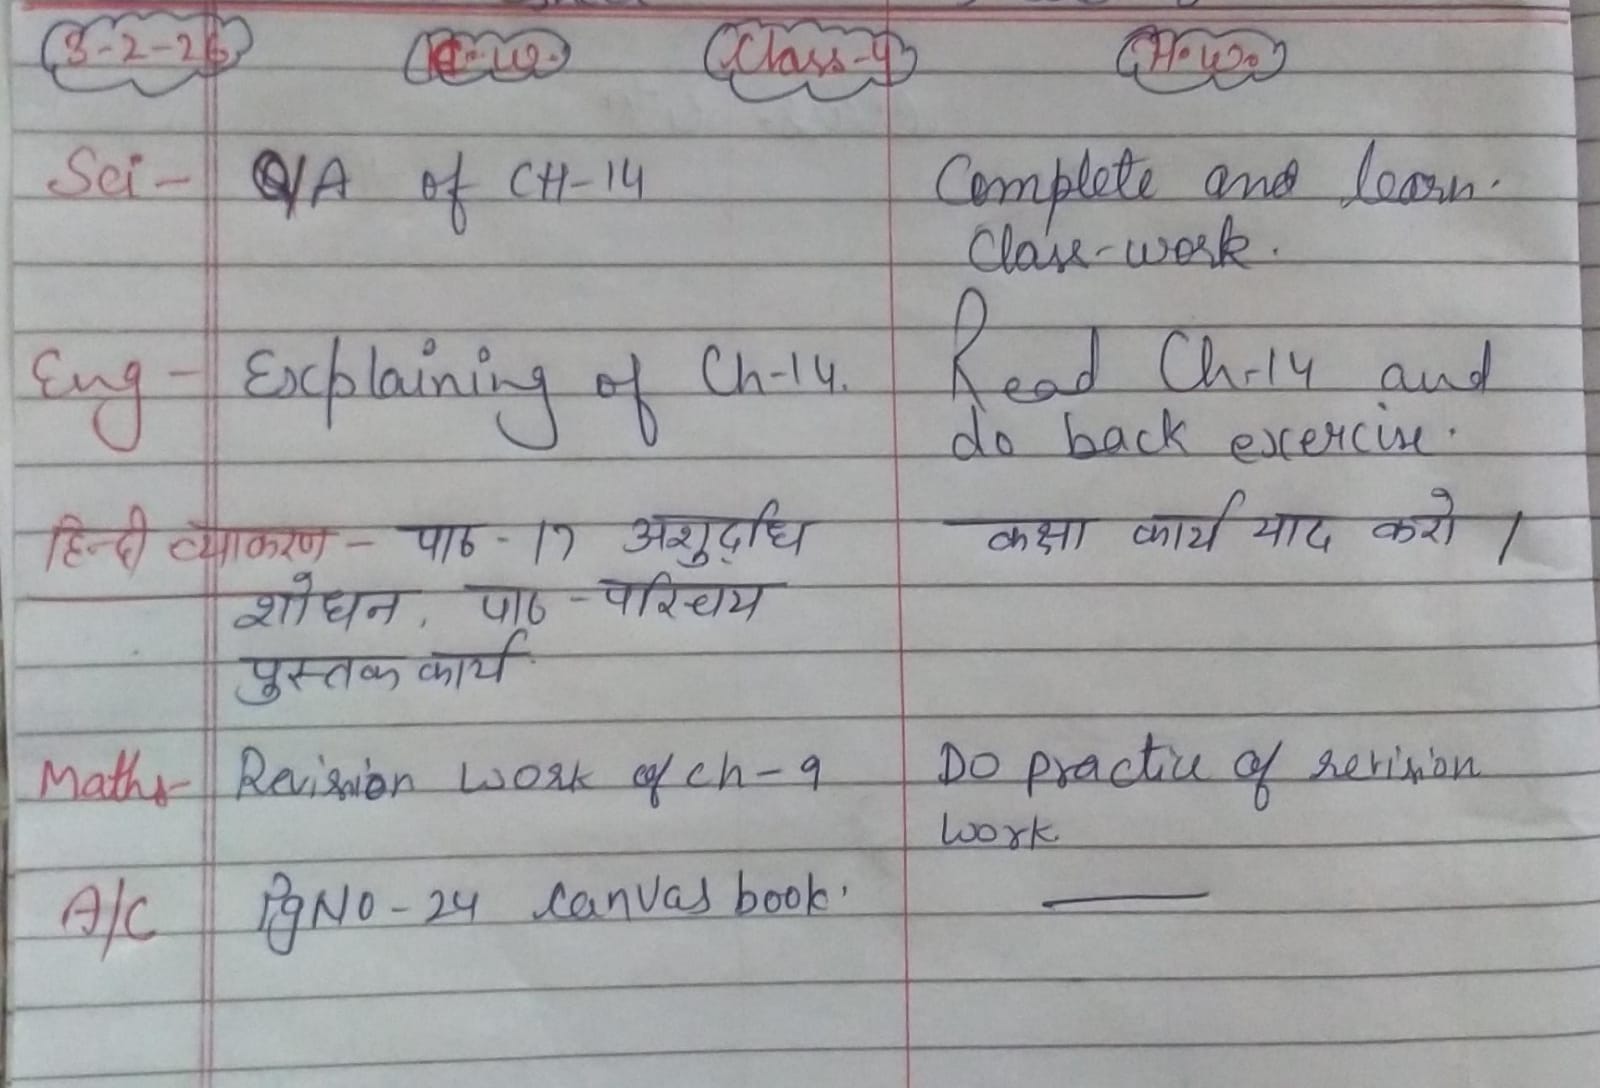 3-2-26 C.W. Class-4 H.W.
Sci- Q/A of CH-14 Complete and learn.
Class-work.
Eng- Explaining of Ch-14. Read Ch-14 and
do back exercise.
हिन्दी व्याकरण - पाठ - 17 अशुद्धि कक्षा कार्य याद करो ।
शोधन, पाठ - परिचय
पुस्तक कार्य
Maths- Revision work of ch-9 Do practice of revision
work.
A/C Pg No - 24 canvas book.